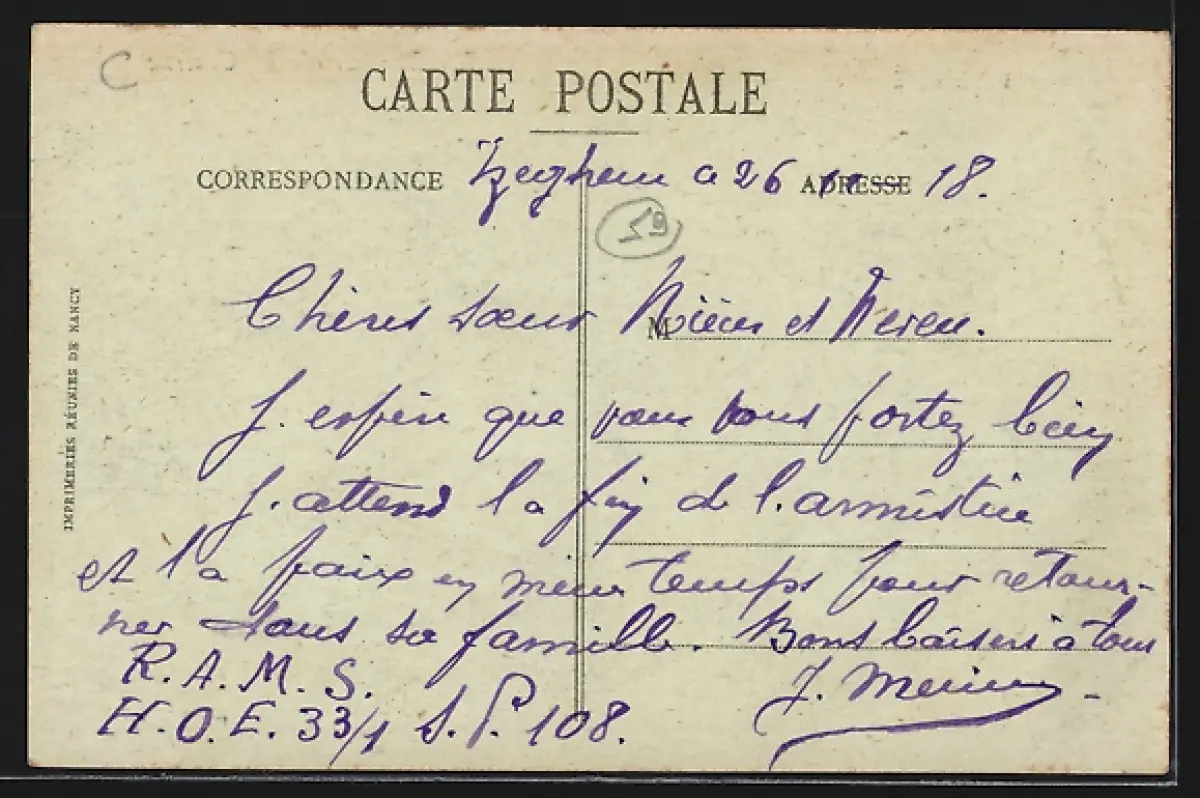 C
CARTE POSTALE
CORRESPONDANCE Izeghem a 26 ADRESSE 11- 18.
59
Chères sœur M Nièces et Neveu.
J. espère que vous vous portez bien
J. attend la fin de l.armistice
et la paix en même temps pour retour-
ner dans sa famille. Bons baisers à tous
R.A.M.S.
H.O.E. 33/1 S.P. 108. J.
IMPRIMERIES RÉUNIES DE NANCY